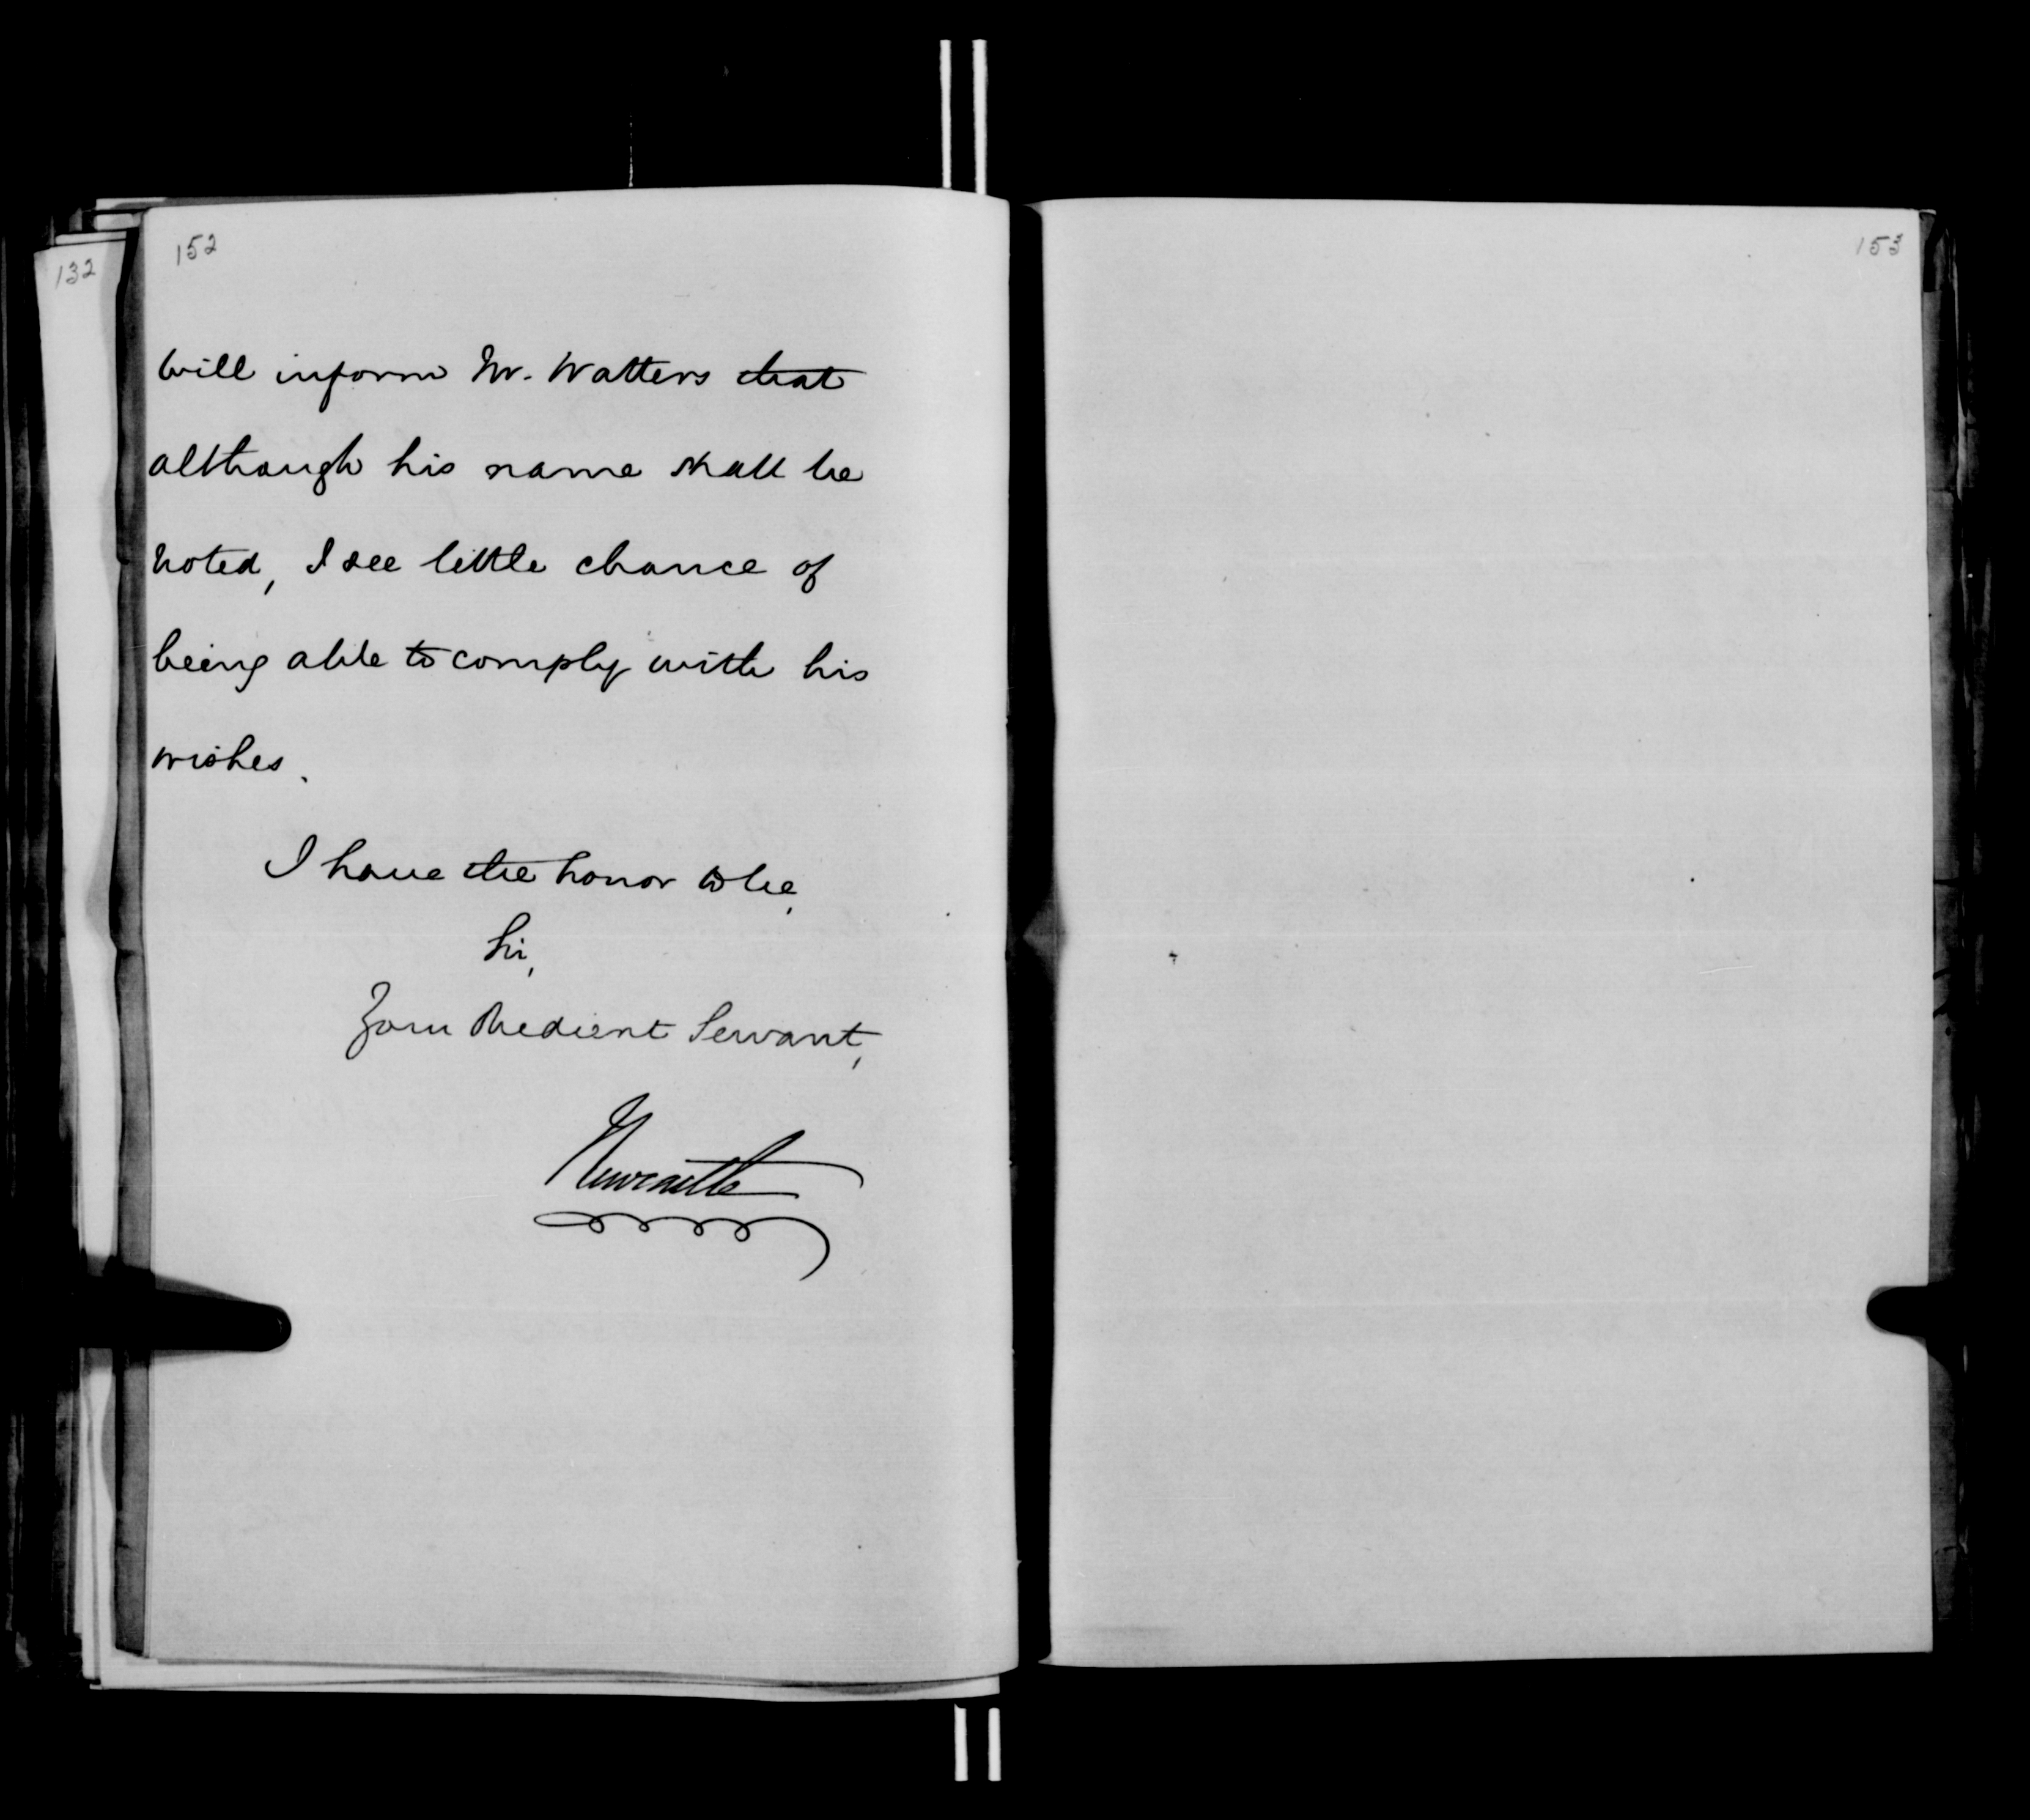 132
152
will inform Mr. Watters that
although his name shall be
noted, I see little chance of
being able to comply with his
wishes.
I have the honor to be,
Sir,
Your Obedient Servant,
Newcastle
153